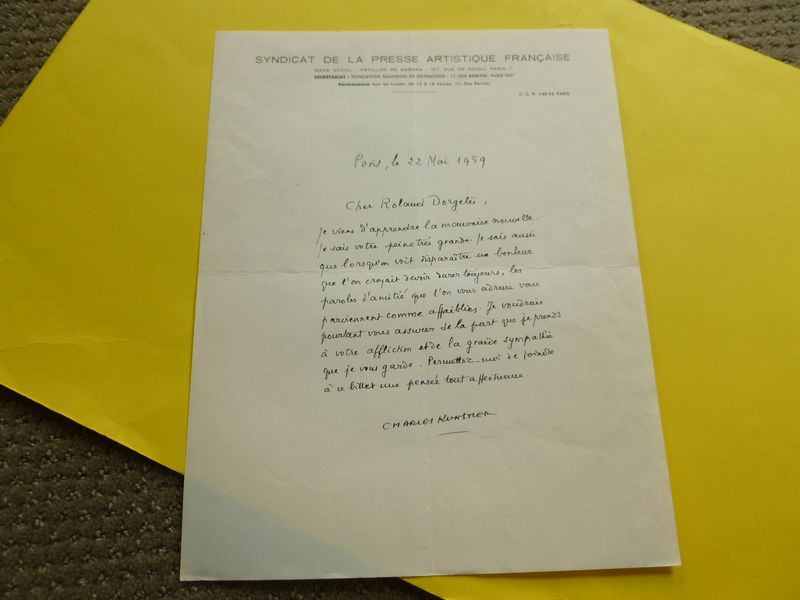 SYNDICAT DE LA PRESSE ARTISTIQUE FRANÇAISE
SIÈGE SOCIAL - PAVILLON DE MARSAN - 107, RUE DE RIVOLI, PARIS 1er
SECRÉTARIAT - FONDATION SALOMON DE ROTHSCHILD - 11, RUE BERRYER, PARIS VIIIe
Permanence tous les Lundis, de 15 à 18 heures, 11, Rue Berryer
C. C. P. PARIS
Paris, le 22 Mai 1959
Cher Roland Dorgelès,
Je viens d'apprendre la mauvaise nouvelle.
Je sais votre peine très grande. Je sais aussi
que lorsqu'on voit disparaître un bonheur
que l'on croyait devoir durer toujours, les
paroles d'amitié que l'on vous adresse vous
parviennent comme affaiblies. Je voudrais
pourtant vous assurer de la part que je prends
à votre affliction et de la grande sympathie
que je vous garde. Permettez-moi de joindre
à ce billet une pensée tout affectueuse.
CHARLES KUNSTLER